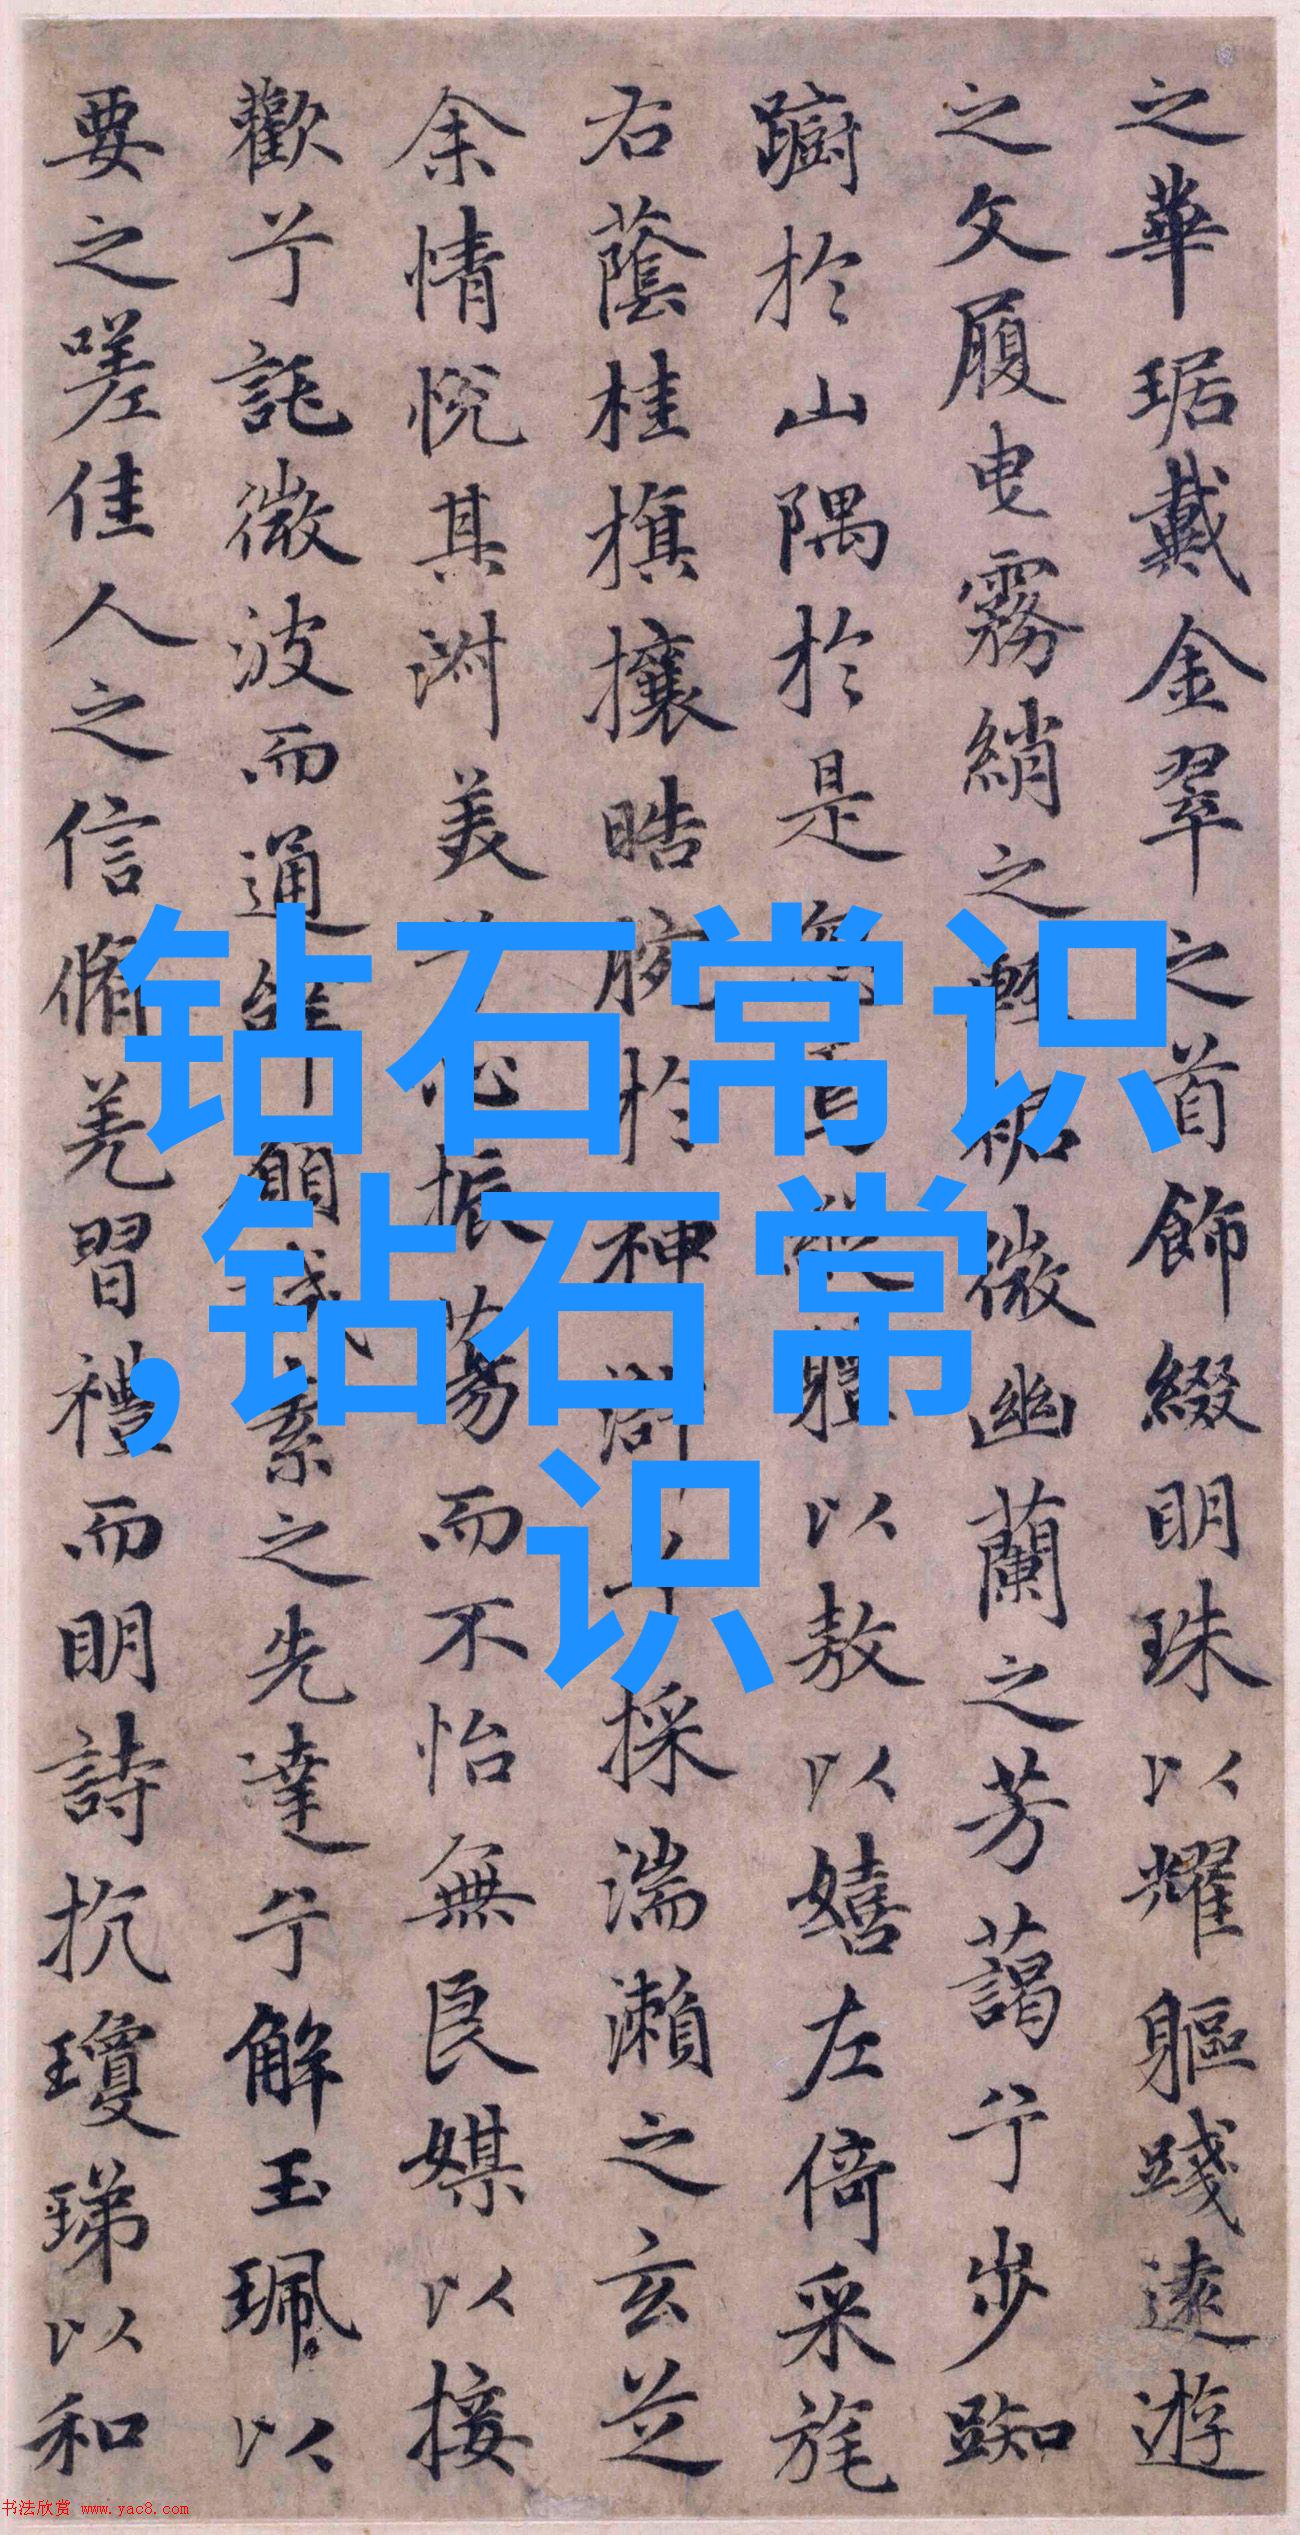 之華琚戴金翠之首飾綴明珠以耀軀踐遠遊
之文履曳霧綃之輕裾微幽蘭之芳藹兮步踟
躕於山隅於是忽焉縱體以敖以嬉左倚采旄
右蔭桂旗攘晧腕於神滸兮採湍瀨之玄芝
余情悅其淑美兮心振蕩而不怡無良媒以接
歡兮託微波而通辭願誠素之先達兮解玉珮以
要之嗟佳人之信脩羌習禮而明詩抗瓊珶以和
钻石常识
,钻石常
识
书法欣赏 www.yac8.com